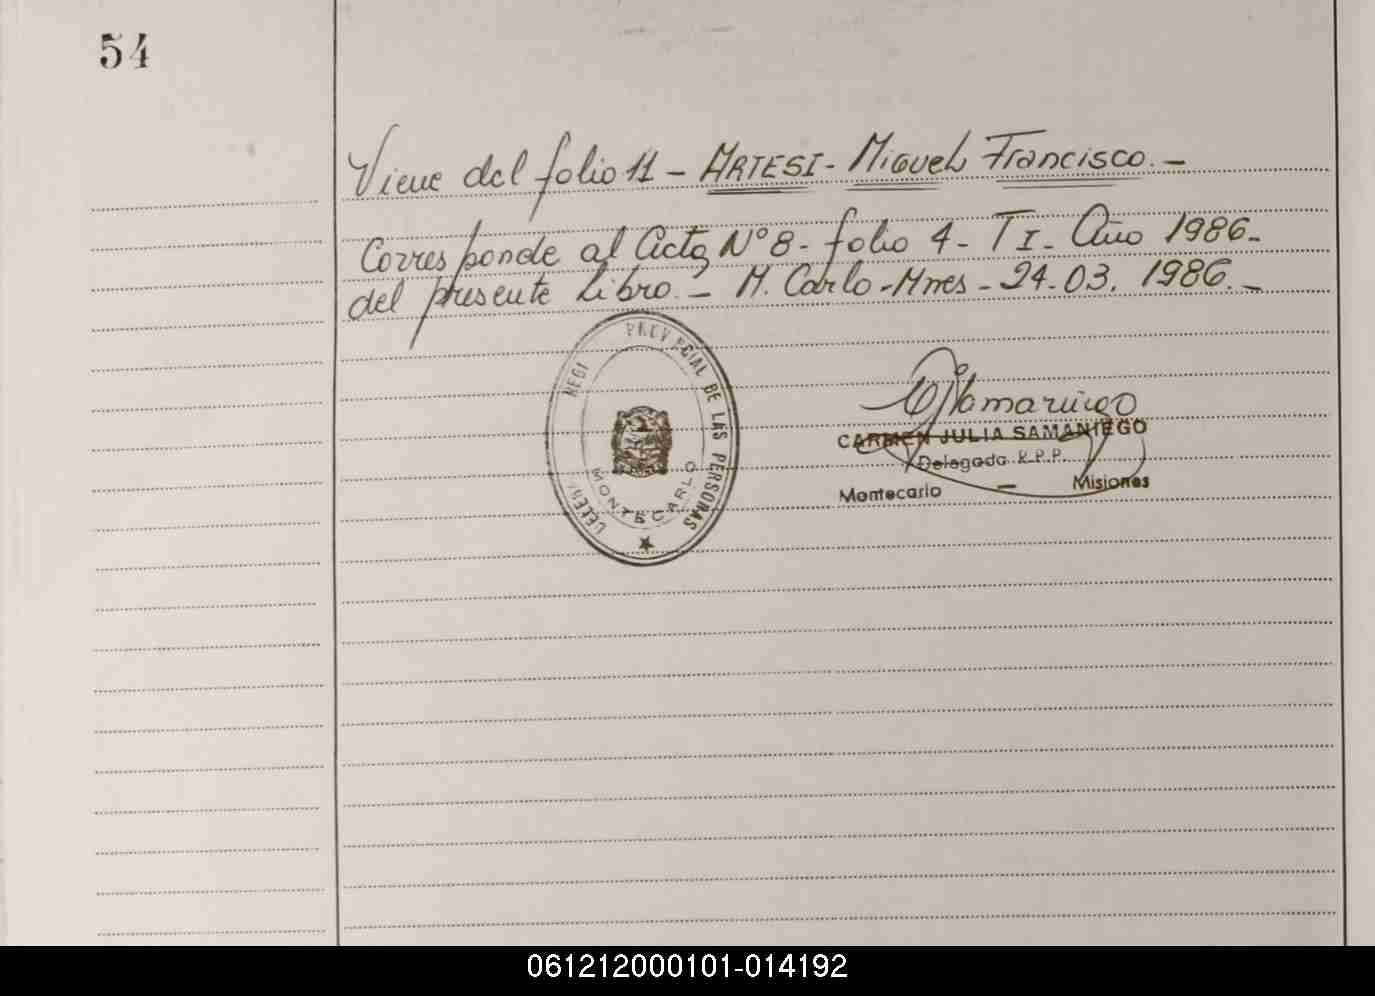 54
Viene del folio 11 - ARTESI - Miguel Francisco. -
Corresponde al Acta Nº 8 - folio 4 - T I - Año 1986 -
del presente Libro. - M. Carlo - Mnes - 24 - 03. 1986. -
PROVINCIAL DE LAS PERSONAS
MONTECARLO
CARMEN JULIA SAMANIEGO
Delegada R.P.P.
Montecarlo - Misiones
061212000101-014192